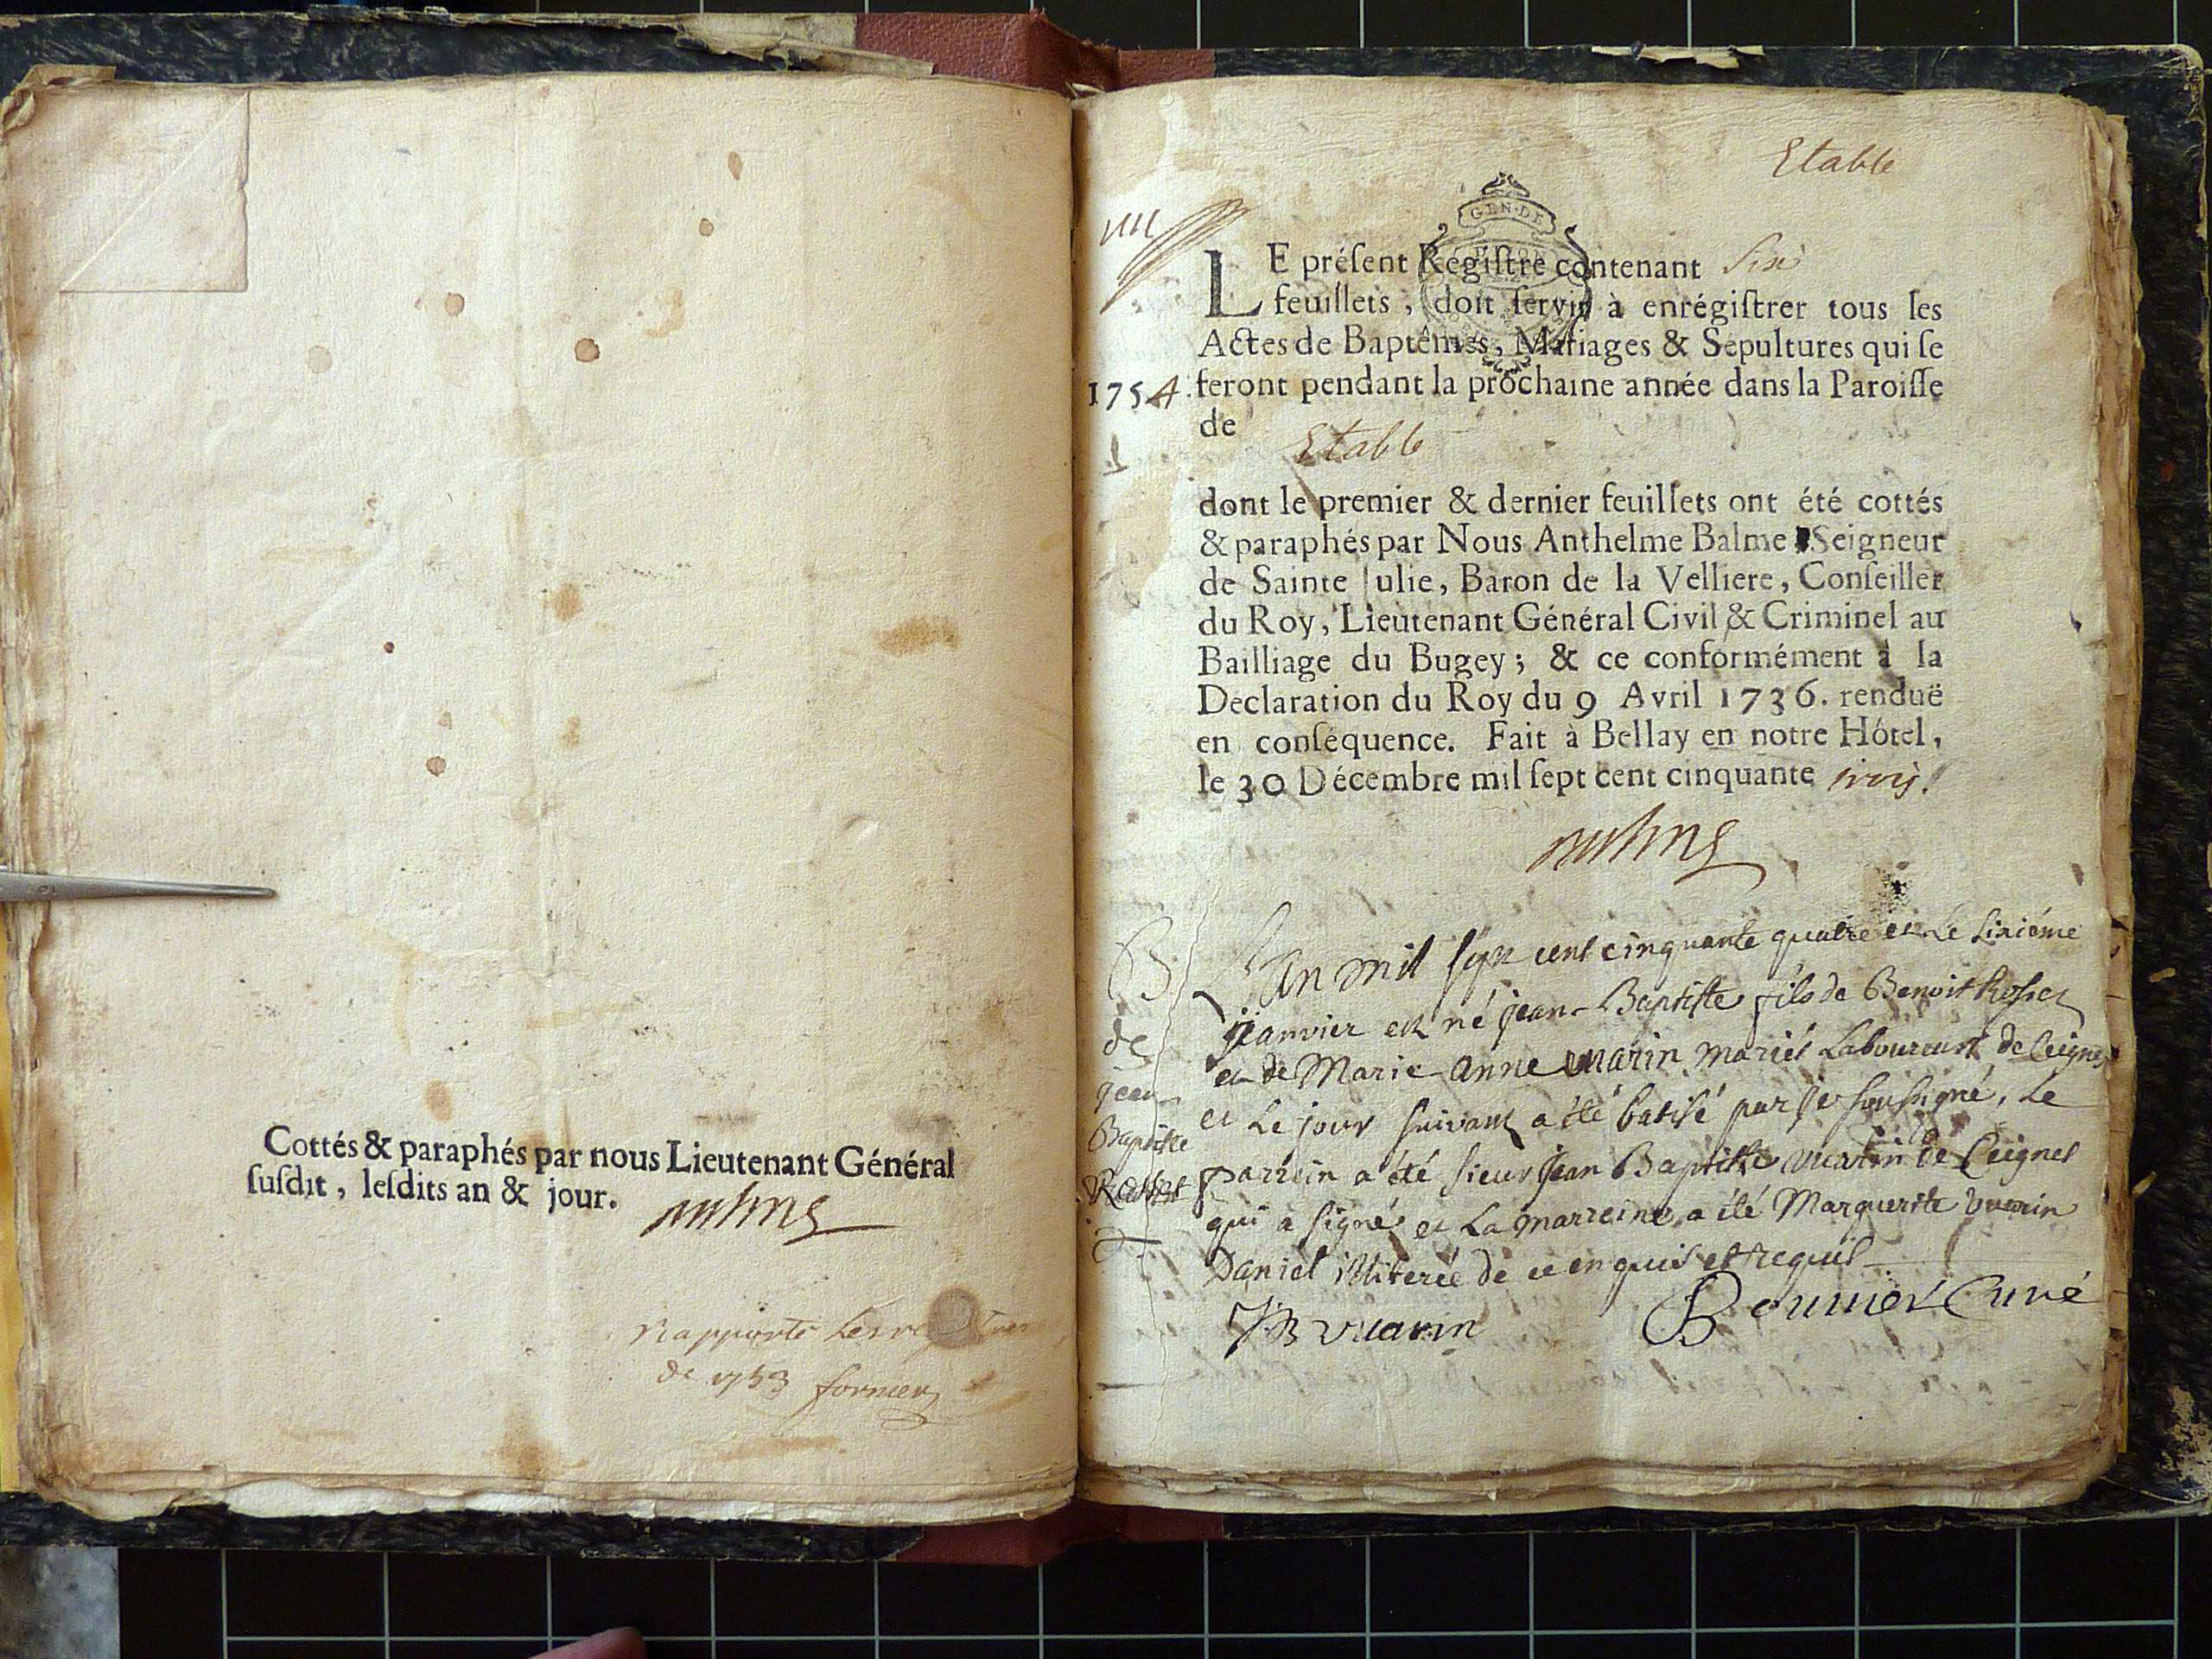 Cottés & paraphés par nous Lieutenant Général
ſuſdit, leſdits an & jour.
Rapporté
de 1753
Etable
GEN·DE
LE préſent Régiſtre contenant Six
feuillets, doit ſervir à enrégiſtrer tous les
Actes de Baptêmes, Mariages & Sépultures qui ſe
1754. feront pendant la prochaine année dans la Paroiſſe
de
1
Etable
dont le premier & dernier feuillets ont été cottés
& paraphés par Nous Anthelme Balme Seigneur
de Sainte Julie, Baron de la Velliere, Conſeiller
du Roy, Lieutenant Général Civil & Criminel au
Bailliage du Bugey; & ce conformément à la
Déclaration du Roy du 9 Avril 1736. renduë
en conſéquence. Fait à Bellay en notre Hôtel,
le 30 Décembre mil ſept cent cinquante trois.
B
de
jean
Baptiste
Rosset
L'an mil sept cent cinquante quatre et Le sixiéme
janvier est né jean-Baptiste fils de Benoit Rosset
et de Marie-anne vuarin mariés Laboureurs de Ceignes
et Le jour suivant a été batisé par je soussigné, Le
parrein a été sieur jean Baptiste vuarin de Ceignes
qui a signé et La marreine a été Marguerite vuarin
Daniel illiterée de ce enquis et requis
JB vuarin
Curé